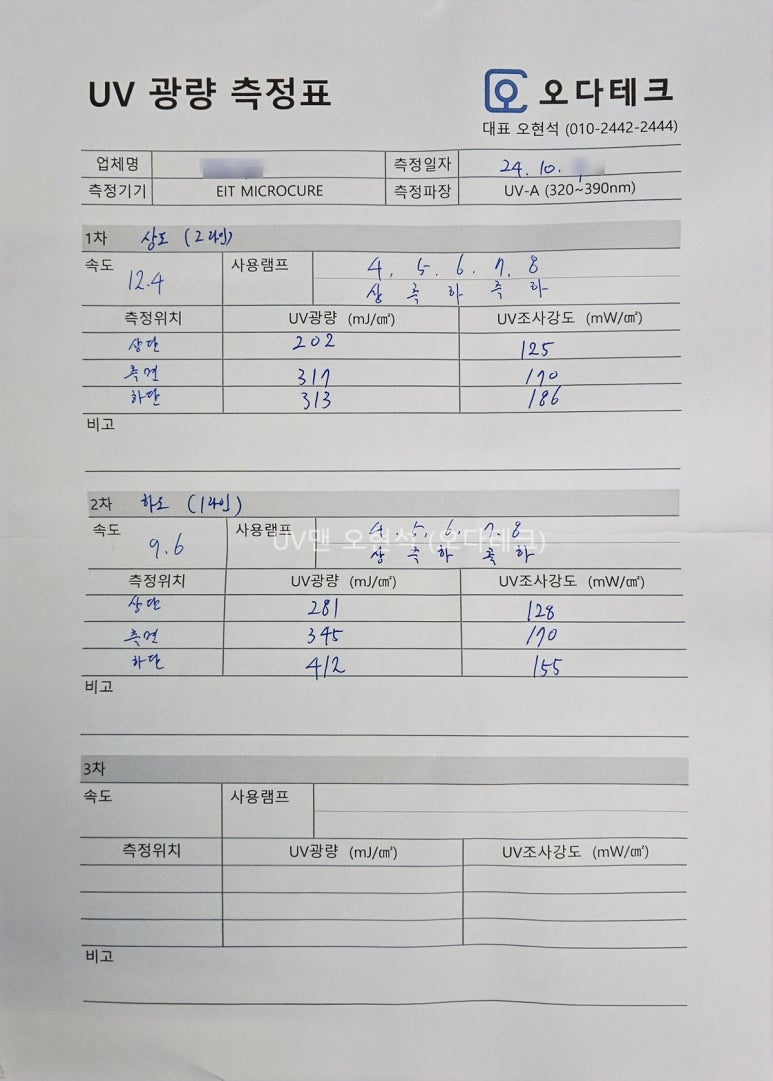 UV 광량 측정표
오다테크
대표 오현석 (010-2442-2444)
업체명 측정일자 24. 10.
측정기기 EIT MICROCURE 측정파장 UV-A (320~390nm)
1차 상도 (2라인)
속도 12.4 사용램프 4. 5. 6. 7. 8
상 측 하 측 하
측정위치 UV광량 (mJ/㎠) UV조사강도 (mW/㎠)
상단 202 125
측면 317 170
하단 313 186
비고
2차 하도 (1라인)
속도 9.6 사용램프 4. 5. 6. 7. 8
UV맨 오현석 (오다테크)
상 측 하 측 하
측정위치 UV광량 (mJ/㎠) UV조사강도 (mW/㎠)
상단 281 128
측면 345 170
하단 412 155
비고
3차
속도 사용램프
측정위치 UV광량 (mJ/㎠) UV조사강도 (mW/㎠)
비고